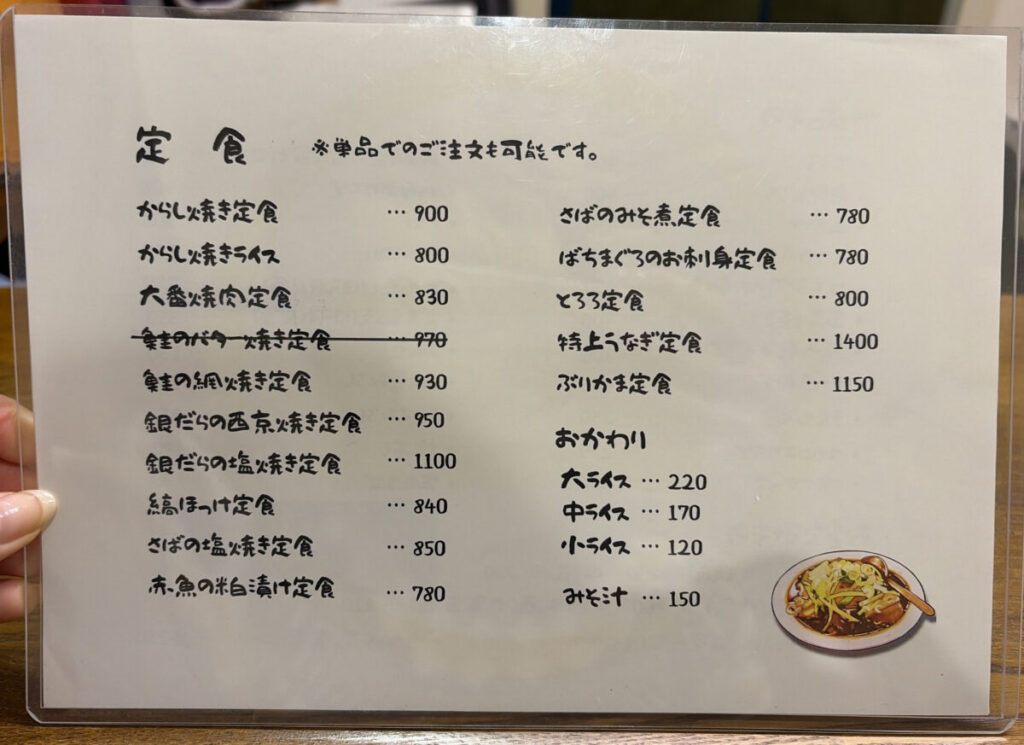 定食 ※単品でのご注文も可能です。
からし焼き定食 … 900
からし焼きライス … 800
大番焼肉定食 … 830
鮭のバター焼き定食 … 970
鮭の網焼き定食 … 930
銀だらの西京焼き定食 … 950
銀だらの塩焼き定食 … 1100
縞ほっけ定食 … 840
さばの塩焼き定食 … 850
赤魚の粕漬け定食 … 780
さばのみそ煮定食 … 780
ばちまぐろのお刺身定食 … 780
とろろ定食 … 800
特上うなぎ定食 … 1400
ぶりかま定食 … 1150
おかわり
大ライス … 220
中ライス … 170
小ライス … 120
みそ汁 … 150